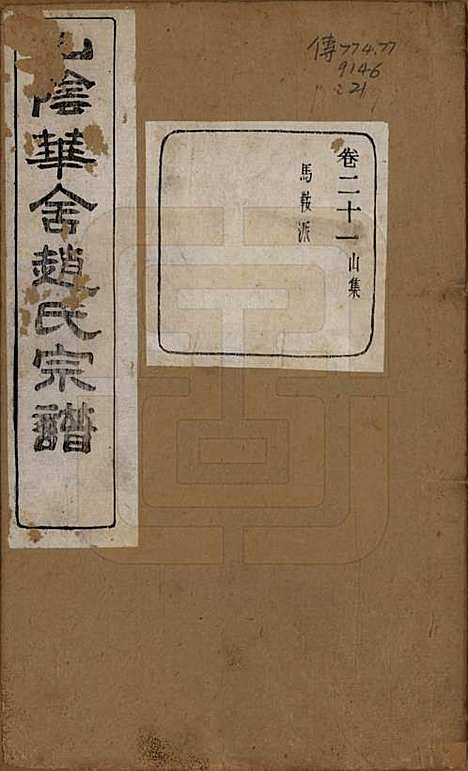 傳774.77
9146
:21
卷二十一 山集
馬鞍派
陰華舍趙氏宗譜